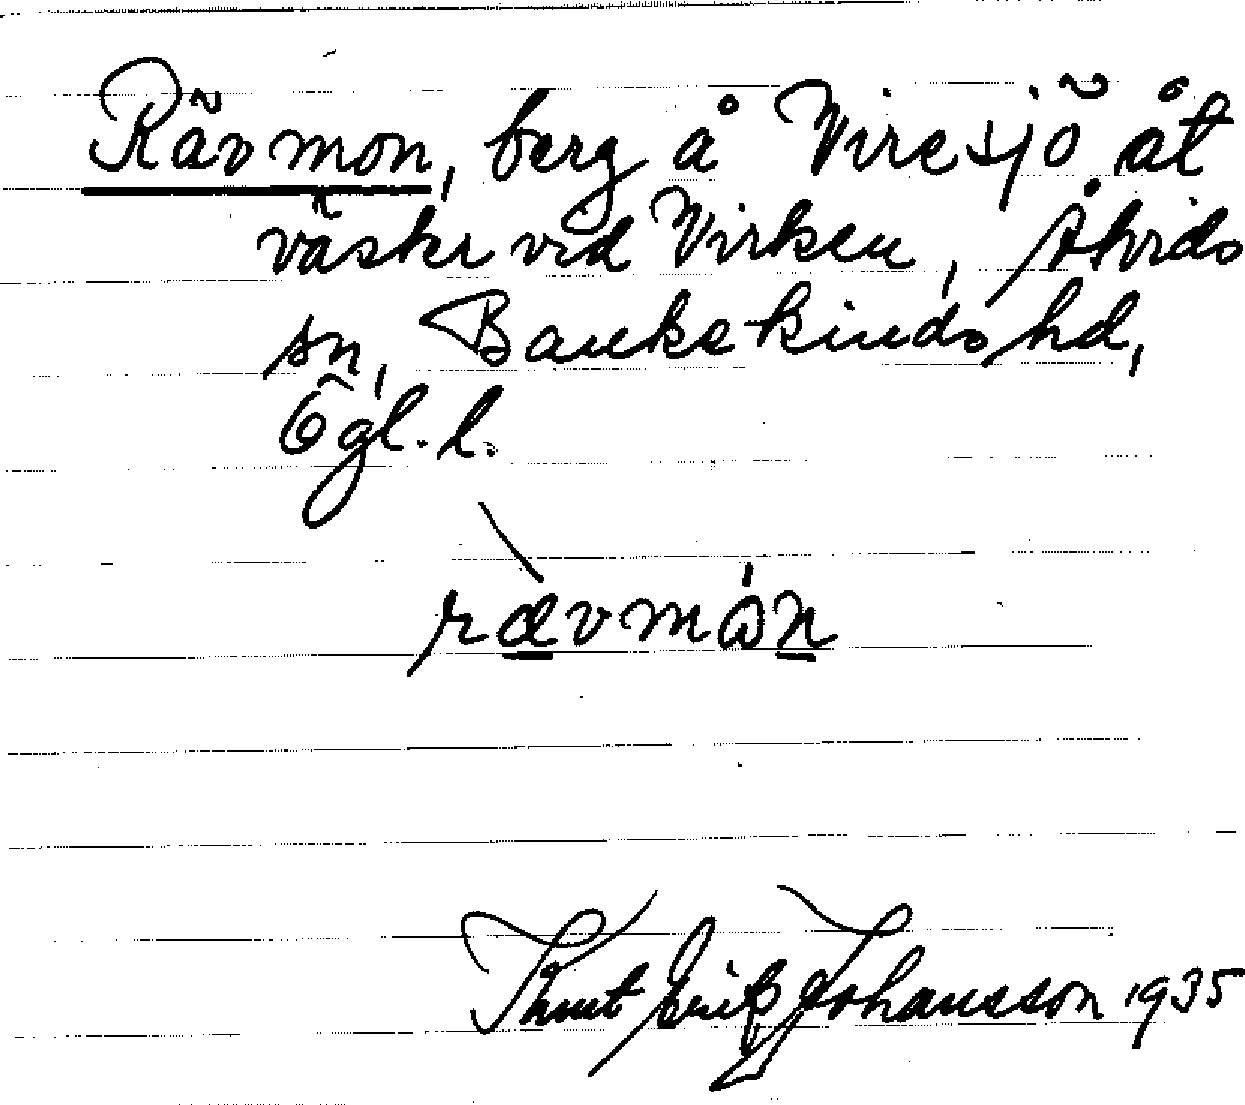 Rävmon, berg å Viresjö åt
väster vid Virken, Åtvids
sn, Bankekinds hd,
Ögl. l.
rævmón
Knut Erik Johansson 1935